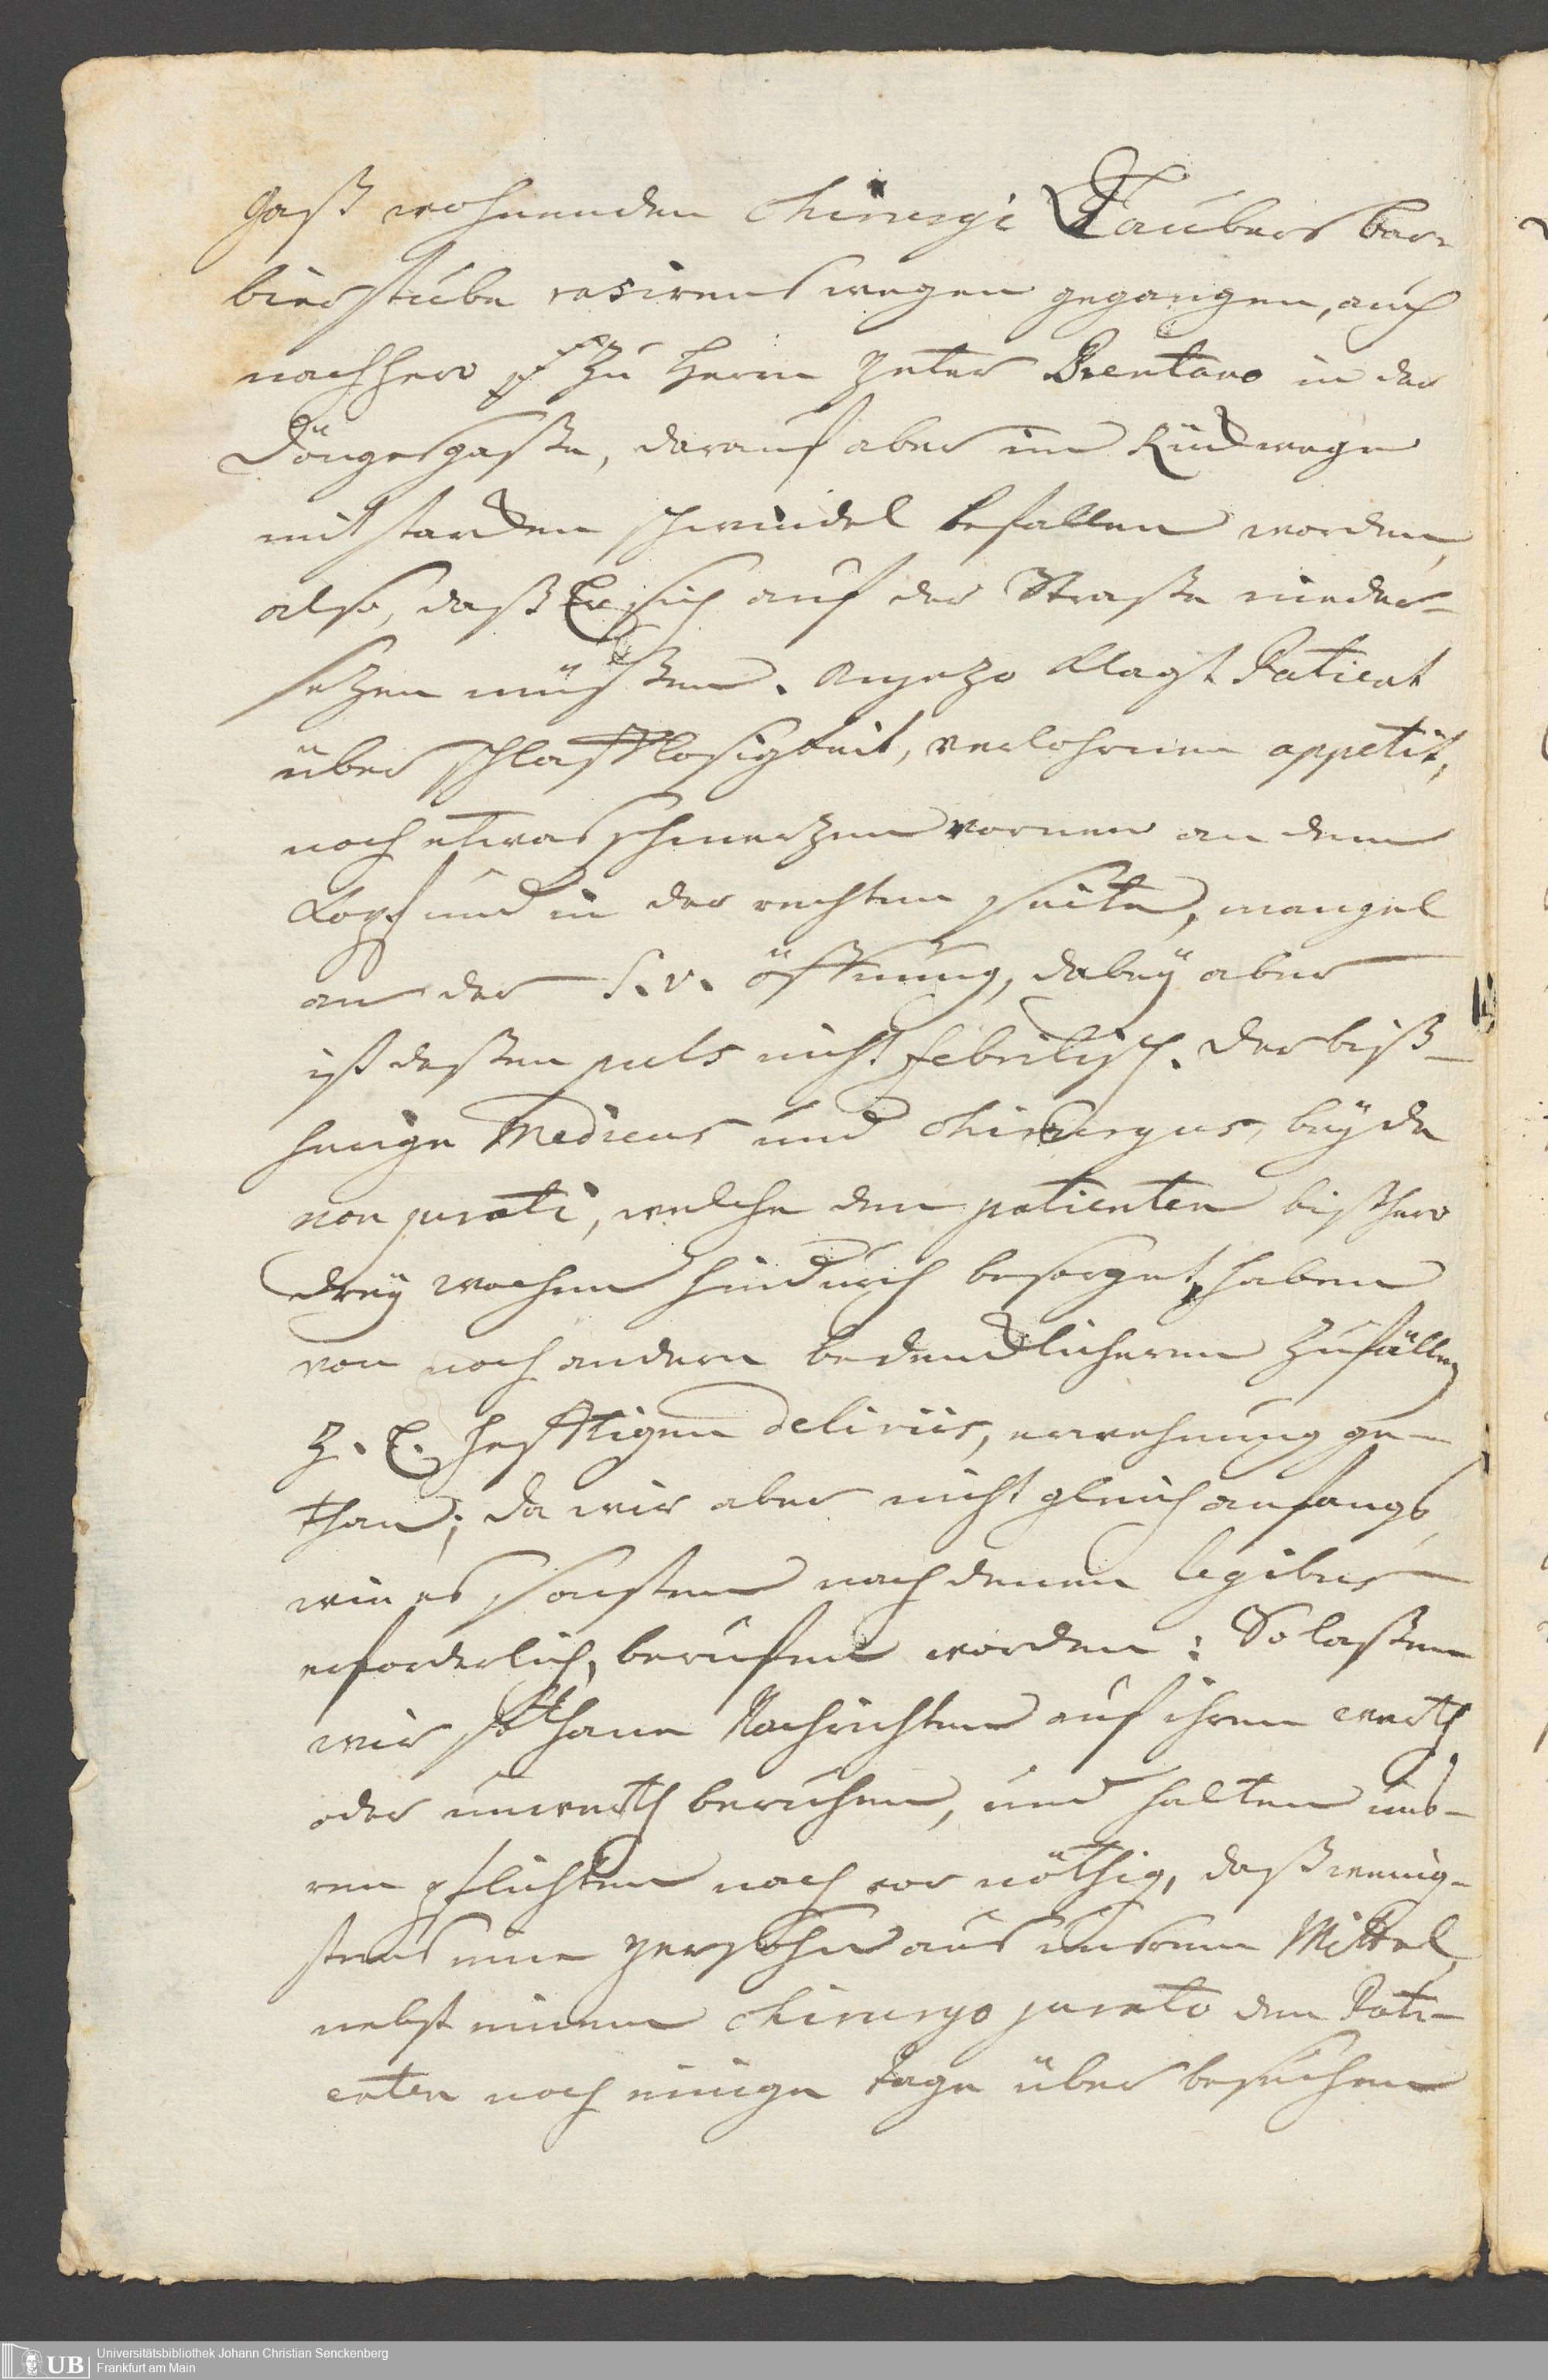 gaß wohnenden Chirurgi Taubers bar-
bierstube rasirens wegen gegangen, auch
nachhero zu Herrn Peter Brentano in der
Döngesgaße, darauf aber im Ruckwege
mit starcken schwindel befallen worden,
also, daß Er sich auf der Straße nieder-
sezen müßen. Anjezo klagt Patient
über schlafflosigkeit, verlohrnen appetit,
noch etwas schmerzen vornen an dem
Kopf und in der rechten seite, mangel
an der S. v. öffnung, dabeÿ aber
ist deßen puls nicht febrilisch. Der biß-
herige Medicus und Chirurgus, beÿde
non jurati, welche den patienten bißhero
dreÿ wochen hindurch besorget, haben
von noch andern bedencklicheren Zufällen
z. E. hefftigen deliriis, erwehnung ge-
than; da wir aber nicht gleich anfangs,
wie es sonsten nach denen legibus
erforderlich, berufen worden: So laßen
wir sothane Nachrichten auf ihrem werth
oder unwerth beruhen, und halten uns-
ren pflichten nach vor nöthig, daß wenig-
stens eine persohn aus unserem Mittel,
nebst einem Chirurgo jurato den Pati-
enten noch einige tage über besuchen
Universitätsbibliothek Johann Christian Senckenberg
Frankfurt am Main
UB